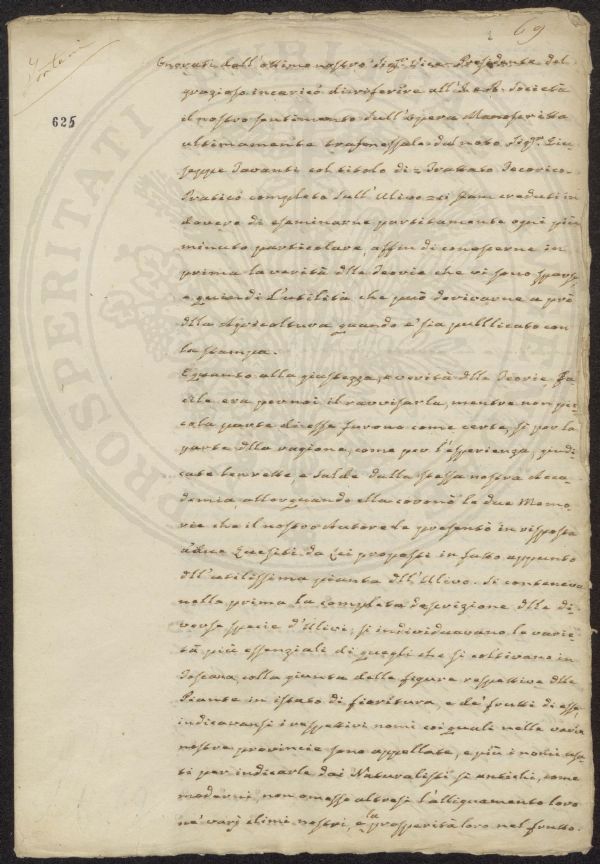 69
625
Onorati dall'ottimo nostro Sigr. Vice-Presidente del
grazioso incarico di riferire all'I. e R. Società
il nostro sentimento sull'opera Manoscritta
ultimamente trasmessale dal noto Sigr. Giu-
seppe Tavanti col titolo di = Trattato Teorico-
Pratico completo sull'Ulivo = ci siam creduti in
dovere di esaminarne partitamente ogni più
minuto particolare, affin di conoscerne in
prima la verità dlle Teorie che vi sono sparse
e quindi l'utilità che può derivarne a prò
dlla Agricoltura quando e' sia pubblicato con
la stampa.
E quanto alla giustezza, e verità dlle Teorie fa-
cile era per noi il ravvisarla, mentre non pic-
cola parte di esse furono come certe, sì per la
parte dlla ragione, come per l'esperienza, giudi-
cate benrette e salde dalla stessa nostra Acca-
demia, allorquando ella coronò le due Memo-
rie che il nostro Autore le presentò in risposta
a due Quesiti da Lei proposti in fatto appunto
dll'utilissima pianta dll'Ulivo. Si conteneva
nella prima la completa descrizione dlle di-
verse specie d'Ulivi; si individuavano le varie-
tà più essenziali di quegli che si coltivano in
Toscana colla giunta delle figure respettive dlle
Piante in istato di fioritura, e de' frutti di esse,
indicavansi i respettivi nomi coi quali nelle varie
nostre provincie sono appellate, e più i nomi usa-
ti per indicarle dai Naturalisti sì antichi, come
moderni, non omesso altresì l'allignamento loro
ne' varj climi nostri, e la prosperità loro nel frutto.
PROSPERITATI